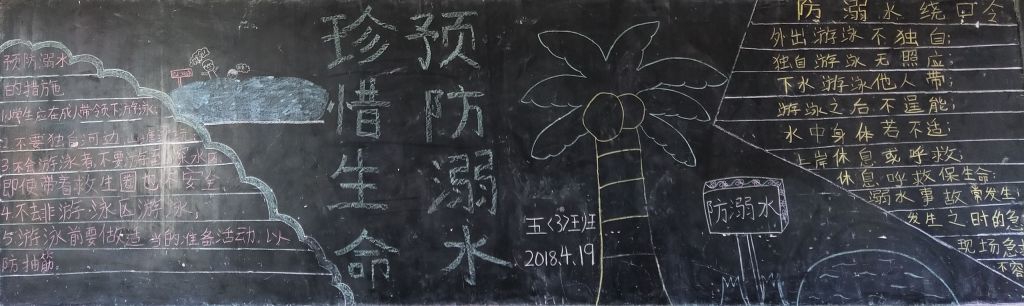 预防溺水
的措施
1小学生应在成 带领下游泳
不要独 河边
3不会游泳者不要游到深水区
即使带着救生圈也 安全
4不去非游泳区游泳,
5游泳前要做适当的准备活动,以
防抽筋。
珍惜生命
预防溺水
五〈3〉班
2018.4.19
防溺水
防溺水绕口令
外出游泳不独自;
独自游泳无照应;
下水游泳他人带;
游泳之后不逞能;
水中身体若不适;
上岸休息或呼救;
休息,呼救保生命;
溺水事故常发生;
发生之时的急
现场急
不容